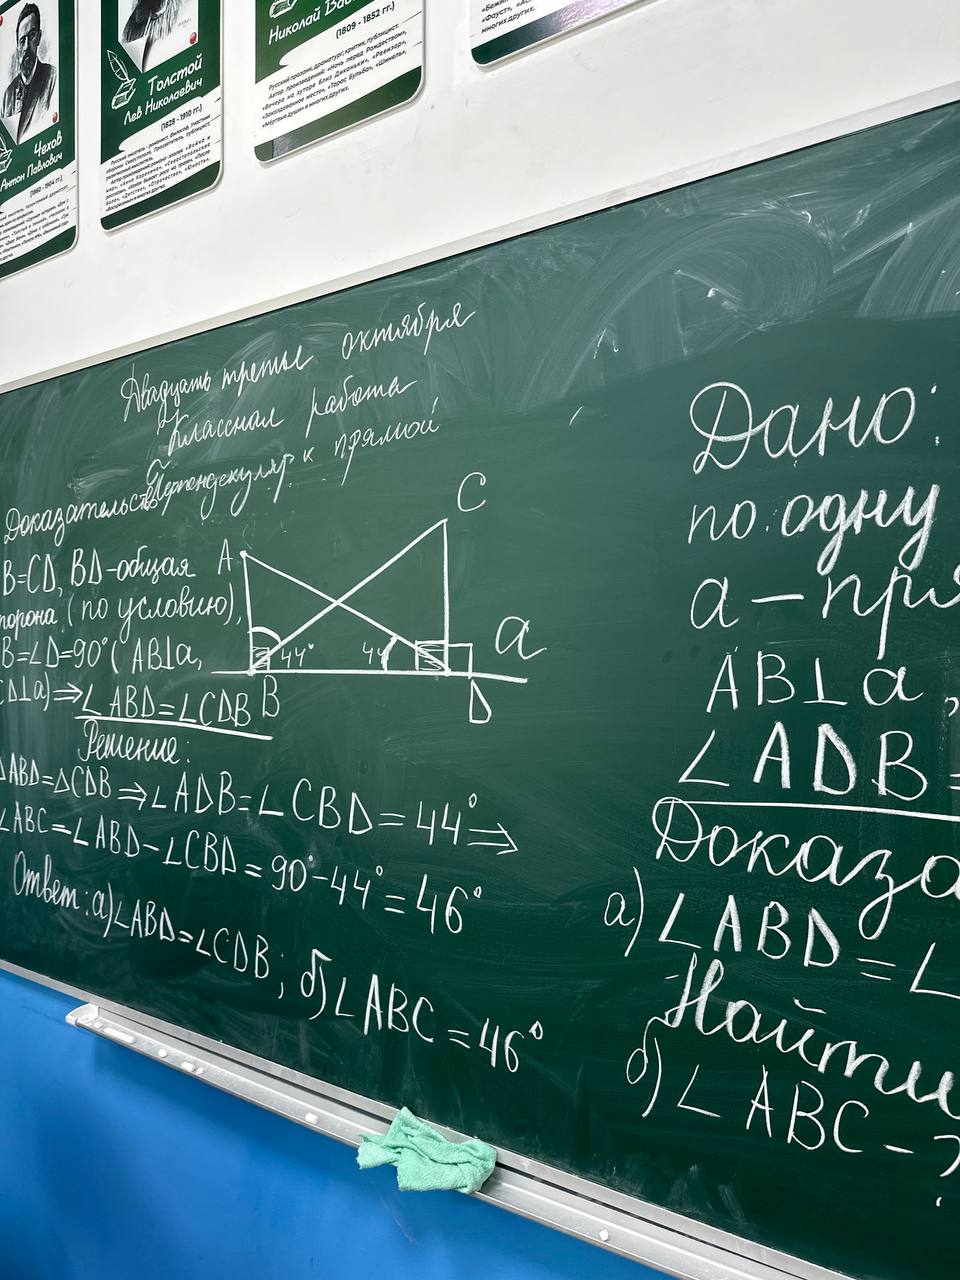 Чехов
Антон Павлович
(1860 - 1904 гг.)
Толстой
Лев Николаевич
(1828 - 1910 гг.)
Русский писатель - романист, философ. Участник
обороны Севастополя. Просветитель, публицист,
религиозный мыслитель.
Николай Вас
(1809 - 1852 гг.)
Русский прозаик, драматург, критик, публицист.
Автор произведений: «Ночь перед Рождеством»,
«Вечера на хуторе близ Диканьки», «Ревизор»,
«Заколдованное место», «Тарас Бульба», «Шинель»,
«Мёртвые души» и многих других.
«Фауст», «Ас
многих других.
Двадцать третье октября
Классная работа
Перпендикуляр к прямой
Доказательство
B=CD, BD-общая
торона (по условию),
B=∠D=90° (AB⊥a,
CD⊥a)⇒∠ABD=∠CDB
Решение:
ΔABD=ΔCDB⇒∠ADB=∠CBD=44°⇒
∠ABC=∠ABD-∠CBD=90°-44°=46°
Ответ: а)∠ABD=∠CDB; б)∠ABC=46°
A
C
44°
44
a
B
D
Дано:
по одну
a - пря
AB⊥a,
∠ADB=
Доказа
а) ∠ABD=∠
Найти
б) ∠ABC-?